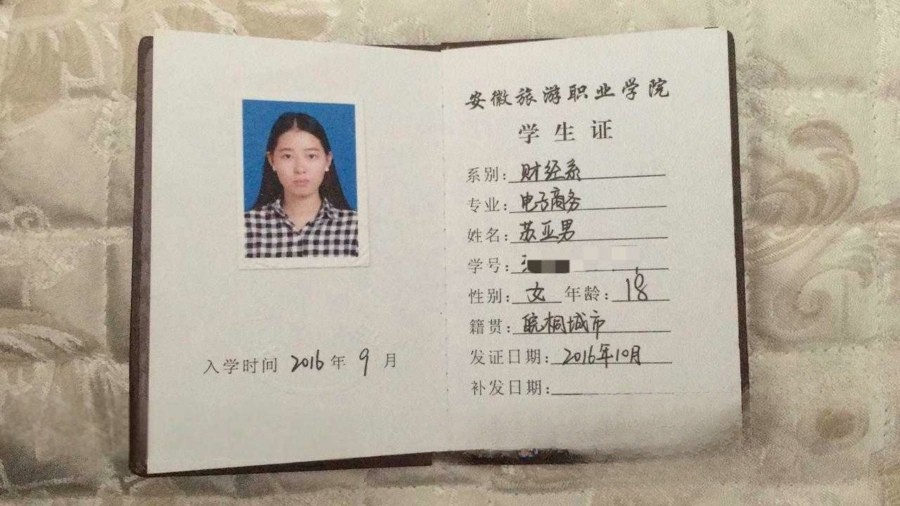 入学时间 2016 年 9 月
安徽旅游职业学院
学生证
系别: 财经系
专业: 电子商务
姓名: 苏亚男
学号:
性别: 女 年龄: 18
籍贯: 皖桐城市
发证日期: 2016年10月
补发日期: